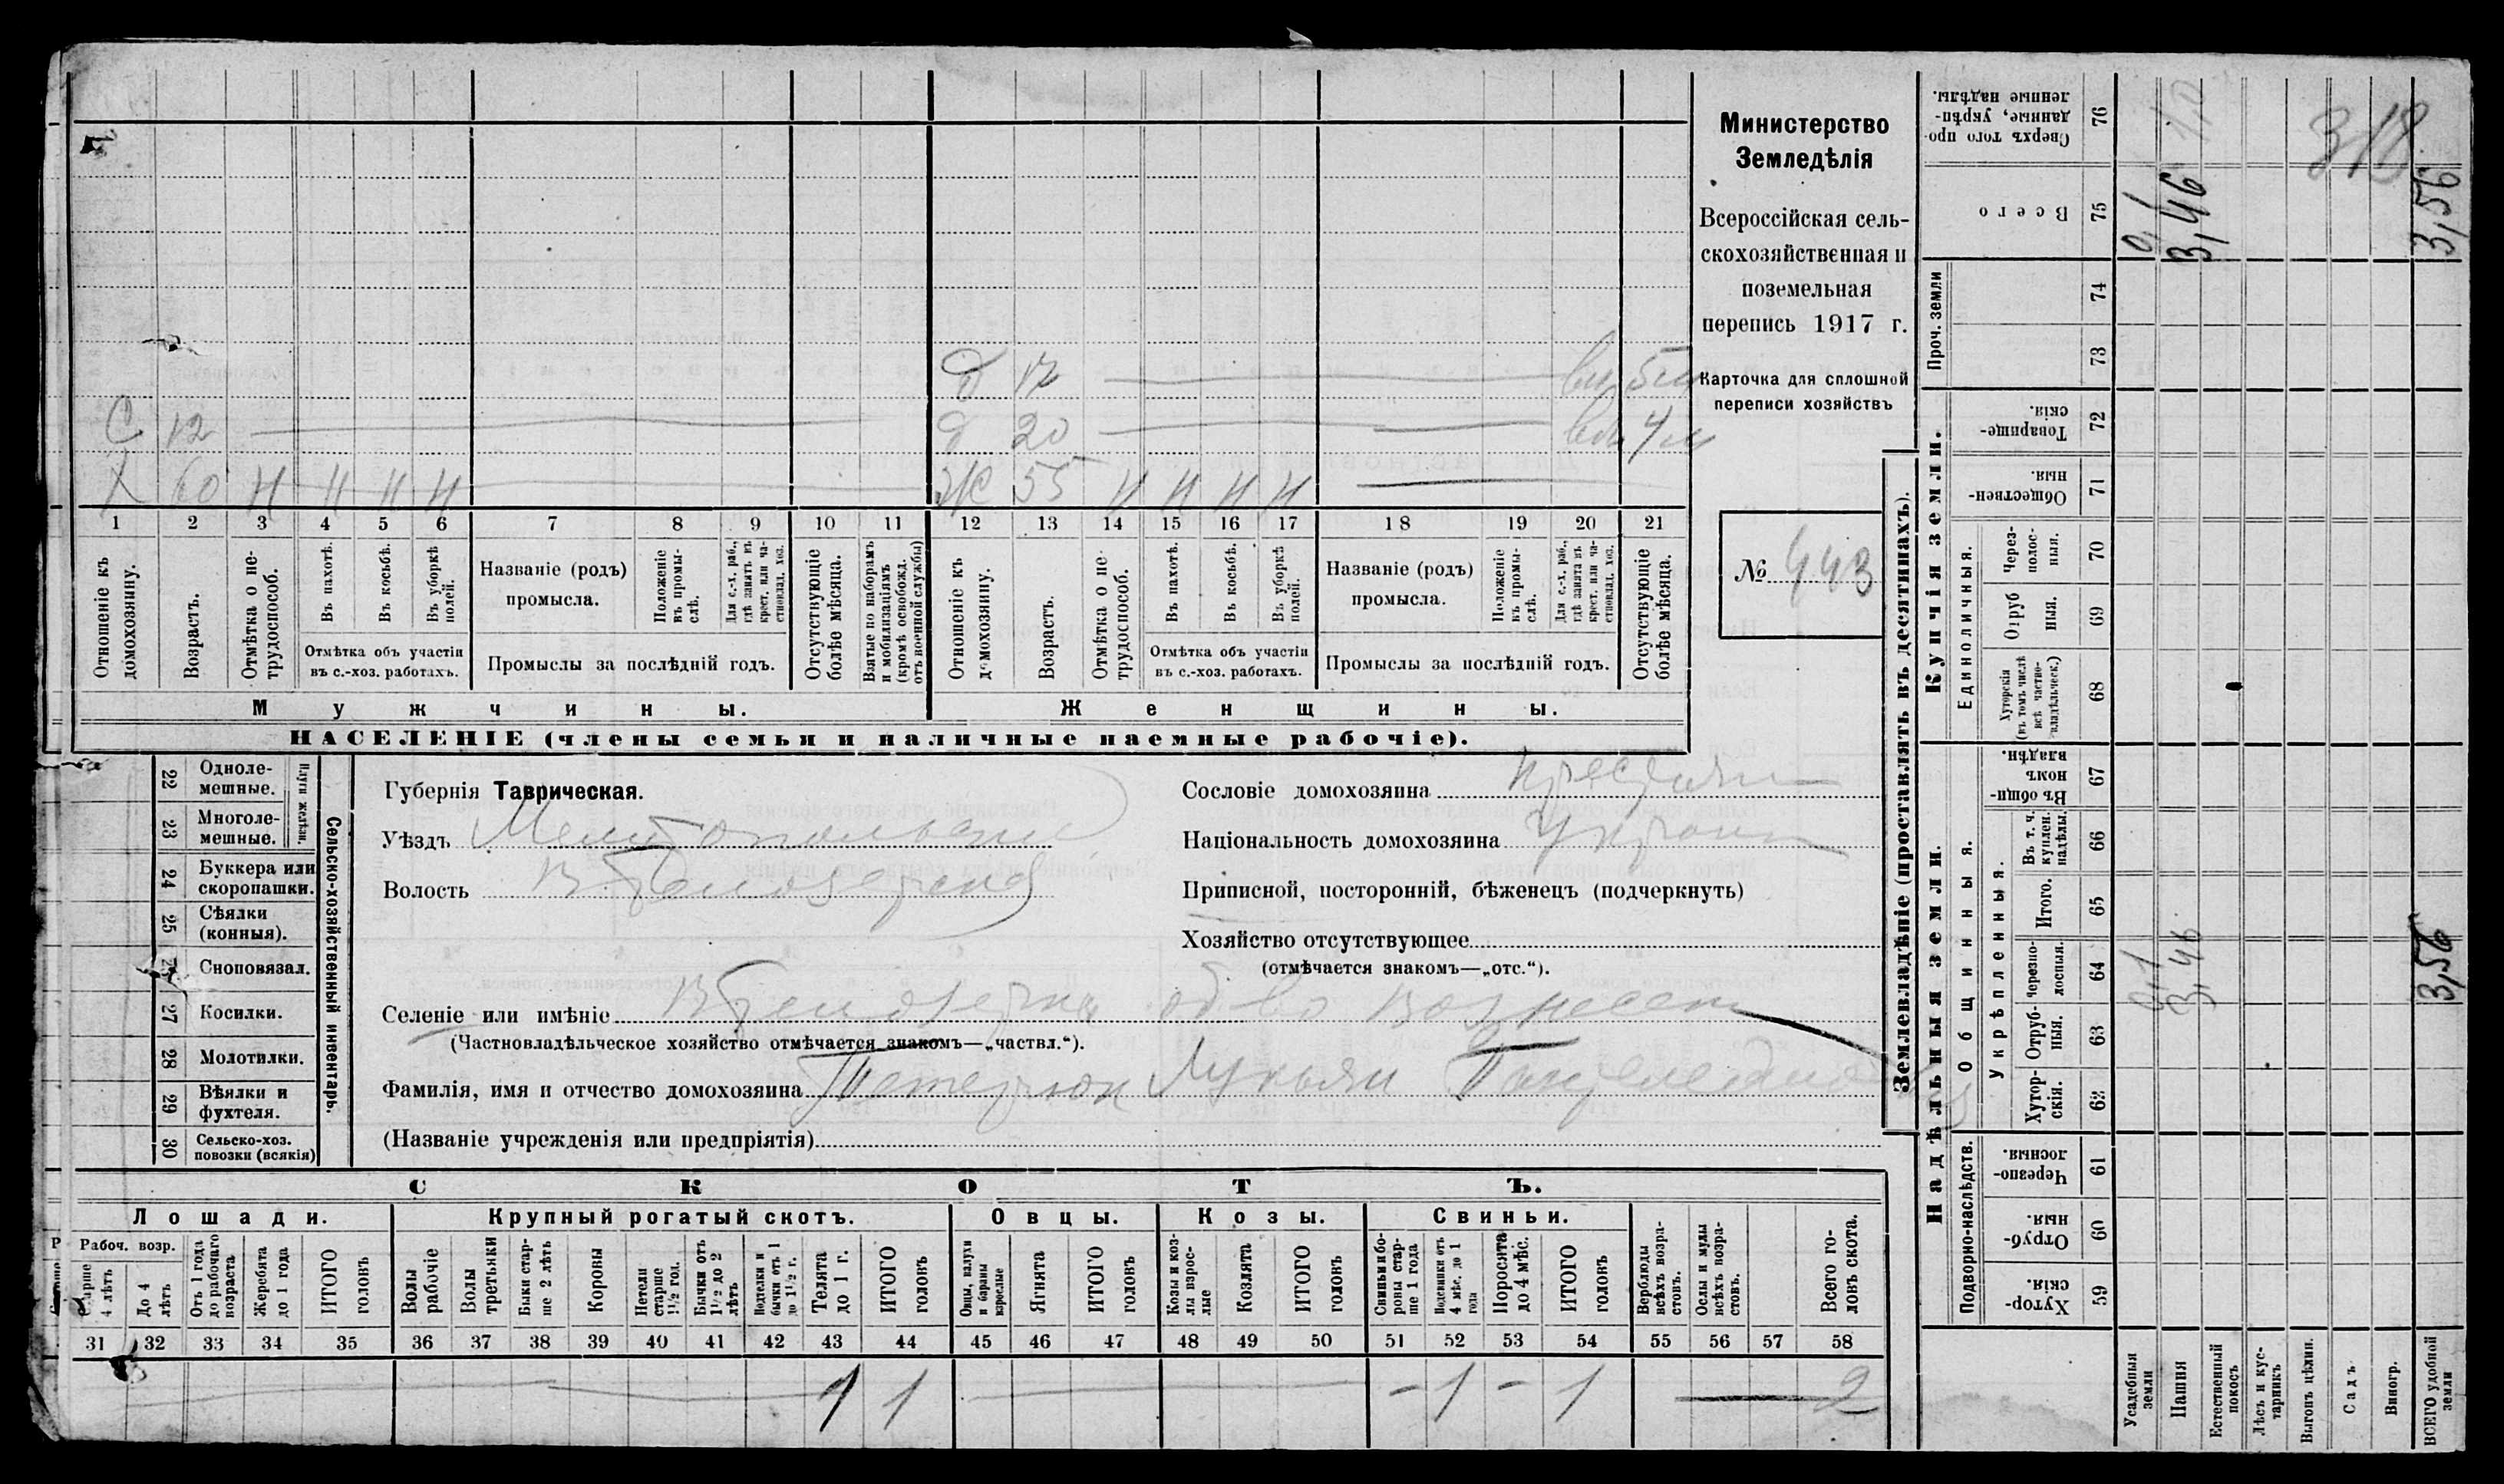 Министерство
Земледѣлія
Всероссійская сель-
скохозяйственная и
поземельная
перепись 1917 г.
Карточка для сплошной
переписи хозяйствъ
№ 443
С 12
Х 60 н н н н
д 17
д 20
ж 55 н н н н
1 2 3 4 5 6 7 8 9 10 11 12 13 14 15 16 17 18 19 20 21
Отношеніе къ домохозяину.
Возрастъ.
Отмѣтка о не-трудоспособ.
Въ пахотѣ.
Въ косьбѣ.
Въ уборкѣ полей.
Отмѣтка объ участіи
въ с.-хоз. работахъ.
Названіе (родъ)
промысла.
Положеніе въ промы-слѣ.
Для с.-х. раб., гдѣ занятъ въ крест. или ча-стновлад. хоз.
Промыслы за послѣдній годъ.
Отсутствующіе болѣе мѣсяца.
Взятые по наборамъ и мобилизаціямъ (кромѣ освобожд. отъ военной службы)
Отношеніе къ домохозяину.
Возрастъ.
Отмѣтка о не-трудоспособ.
Въ пахотѣ.
Въ косьбѣ.
Въ уборкѣ полей.
Отмѣтка объ участіи
въ с.-хоз. работахъ.
Названіе (родъ)
промысла.
Положеніе въ промы-слѣ.
Для с.-х. раб., гдѣ занята въ крест. или ча-стновлад. хоз.
Промыслы за послѣдній годъ.
Отсутствующіе болѣе мѣсяца.
Мужчины.
Женщины.
НАСЕЛЕНІЕ (члены семьи и наличные наемные рабочіе).
22 Одноле-мешные.
23 Многоле-мешные.
Плуги желѣзн.
24 Буккера или скоропашки.
25 Сѣялки (конныя).
Сноповязал.
27 Косилки.
28 Молотилки.
29 Вѣялки и фухтеля.
30 Сельско-хоз. повозки (всякія)
Сельско-хозяйственный инвентарь.
Губернія Таврическая.
Уѣздъ Мелитопольскій
Волость В Белозерская
Сословіе домохозяина крестьян
Національность домохозяина Украин
Приписной, посторонній, бѣженецъ (подчеркнуть)
Хозяйство отсутствующее
(отмѣчается знакомъ—„отс.“).
Селеніе или имѣніе В Белозерка об во Вознесен
(Частновладѣльческое хозяйство отмѣчается знакомъ—„частвл.“).
Фамилія, имя и отчество домохозяина Тетерюк Лукьян
(Названіе учрежденія или предпріятія)
СКОТЪ.
Лошади.
Крупный рогатый скотъ.
Овцы.
Козы.
Свиньи.
Рабоч. возр.
Старше 4 лѣтъ
До 4 лѣтъ
Отъ 1 года до рабочаго возраста
Жеребята до 1 года
ИТОГО головъ
Волы рабочіе
Волы третьяки
Быки стар-ше 2 лѣтъ
Коровы
Нетели старше 1½ год.
Бычки отъ 1½ до 2 лѣтъ
Подтелки и бычки отъ 1 до 1½ г.
Телята до 1 г.
ИТОГО головъ
Овцы, валухи и бараны взрослые
Ягнята
ИТОГО головъ
Козы и коз-лы взрос-лые
Козлята
ИТОГО головъ
Свиньи и бо-ровы стар-ше 1 года
Подсвинки отъ 4 мѣс. до 1 года
Поросята до 4 мѣс.
ИТОГО головъ
Верблюды всѣхъ возра-стовъ.
Ослы и мулы всѣхъ возра-стовъ.
Всего го-ловъ скота.
31 32 33 34 35 36 37 38 39 40 41 42 43 44 45 46 47 48 49 50 51 52 53 54 55 56 57 58
1 1 - 1 - 1 2
Землевладѣніе (проставлять въ десятинахъ).
Надѣльныя земли.
Купчія земли.
Проч. земли
Подворно-наслѣдств.
Общинныя.
Укрѣпленныя.
Единоличныя.
59 Хутор-скія.
60 Отруб-ныя.
61 Черезпо-лосныя.
62 Хутор-скія.
63 Отруб-ныя.
64 Черезпо-лосныя.
65 Итого.
66 Въ т. ч. куплен. надѣлы.
67 Въ общи-номъ владѣн.
68 Хуторскія (въ томъ числѣ всѣ частно-владѣльческ.)
69 Отруб ныя.
70 Через-полос-ныя.
71 Обществен-ныя.
72 Товарище-скія.
73
74
75 Всего
76 Сверхъ того про-данные, укрѣп-ленные надѣлы.
Усадебныя земли
Пашня
Естественный покосъ
Лѣсъ и кус-тарникъ
Выгонъ цѣлин.
Садъ
Виногр.
ВСЕГО удобной земли
0,1
3,46
3,56
0,1
3,46
3,56
1,0
318